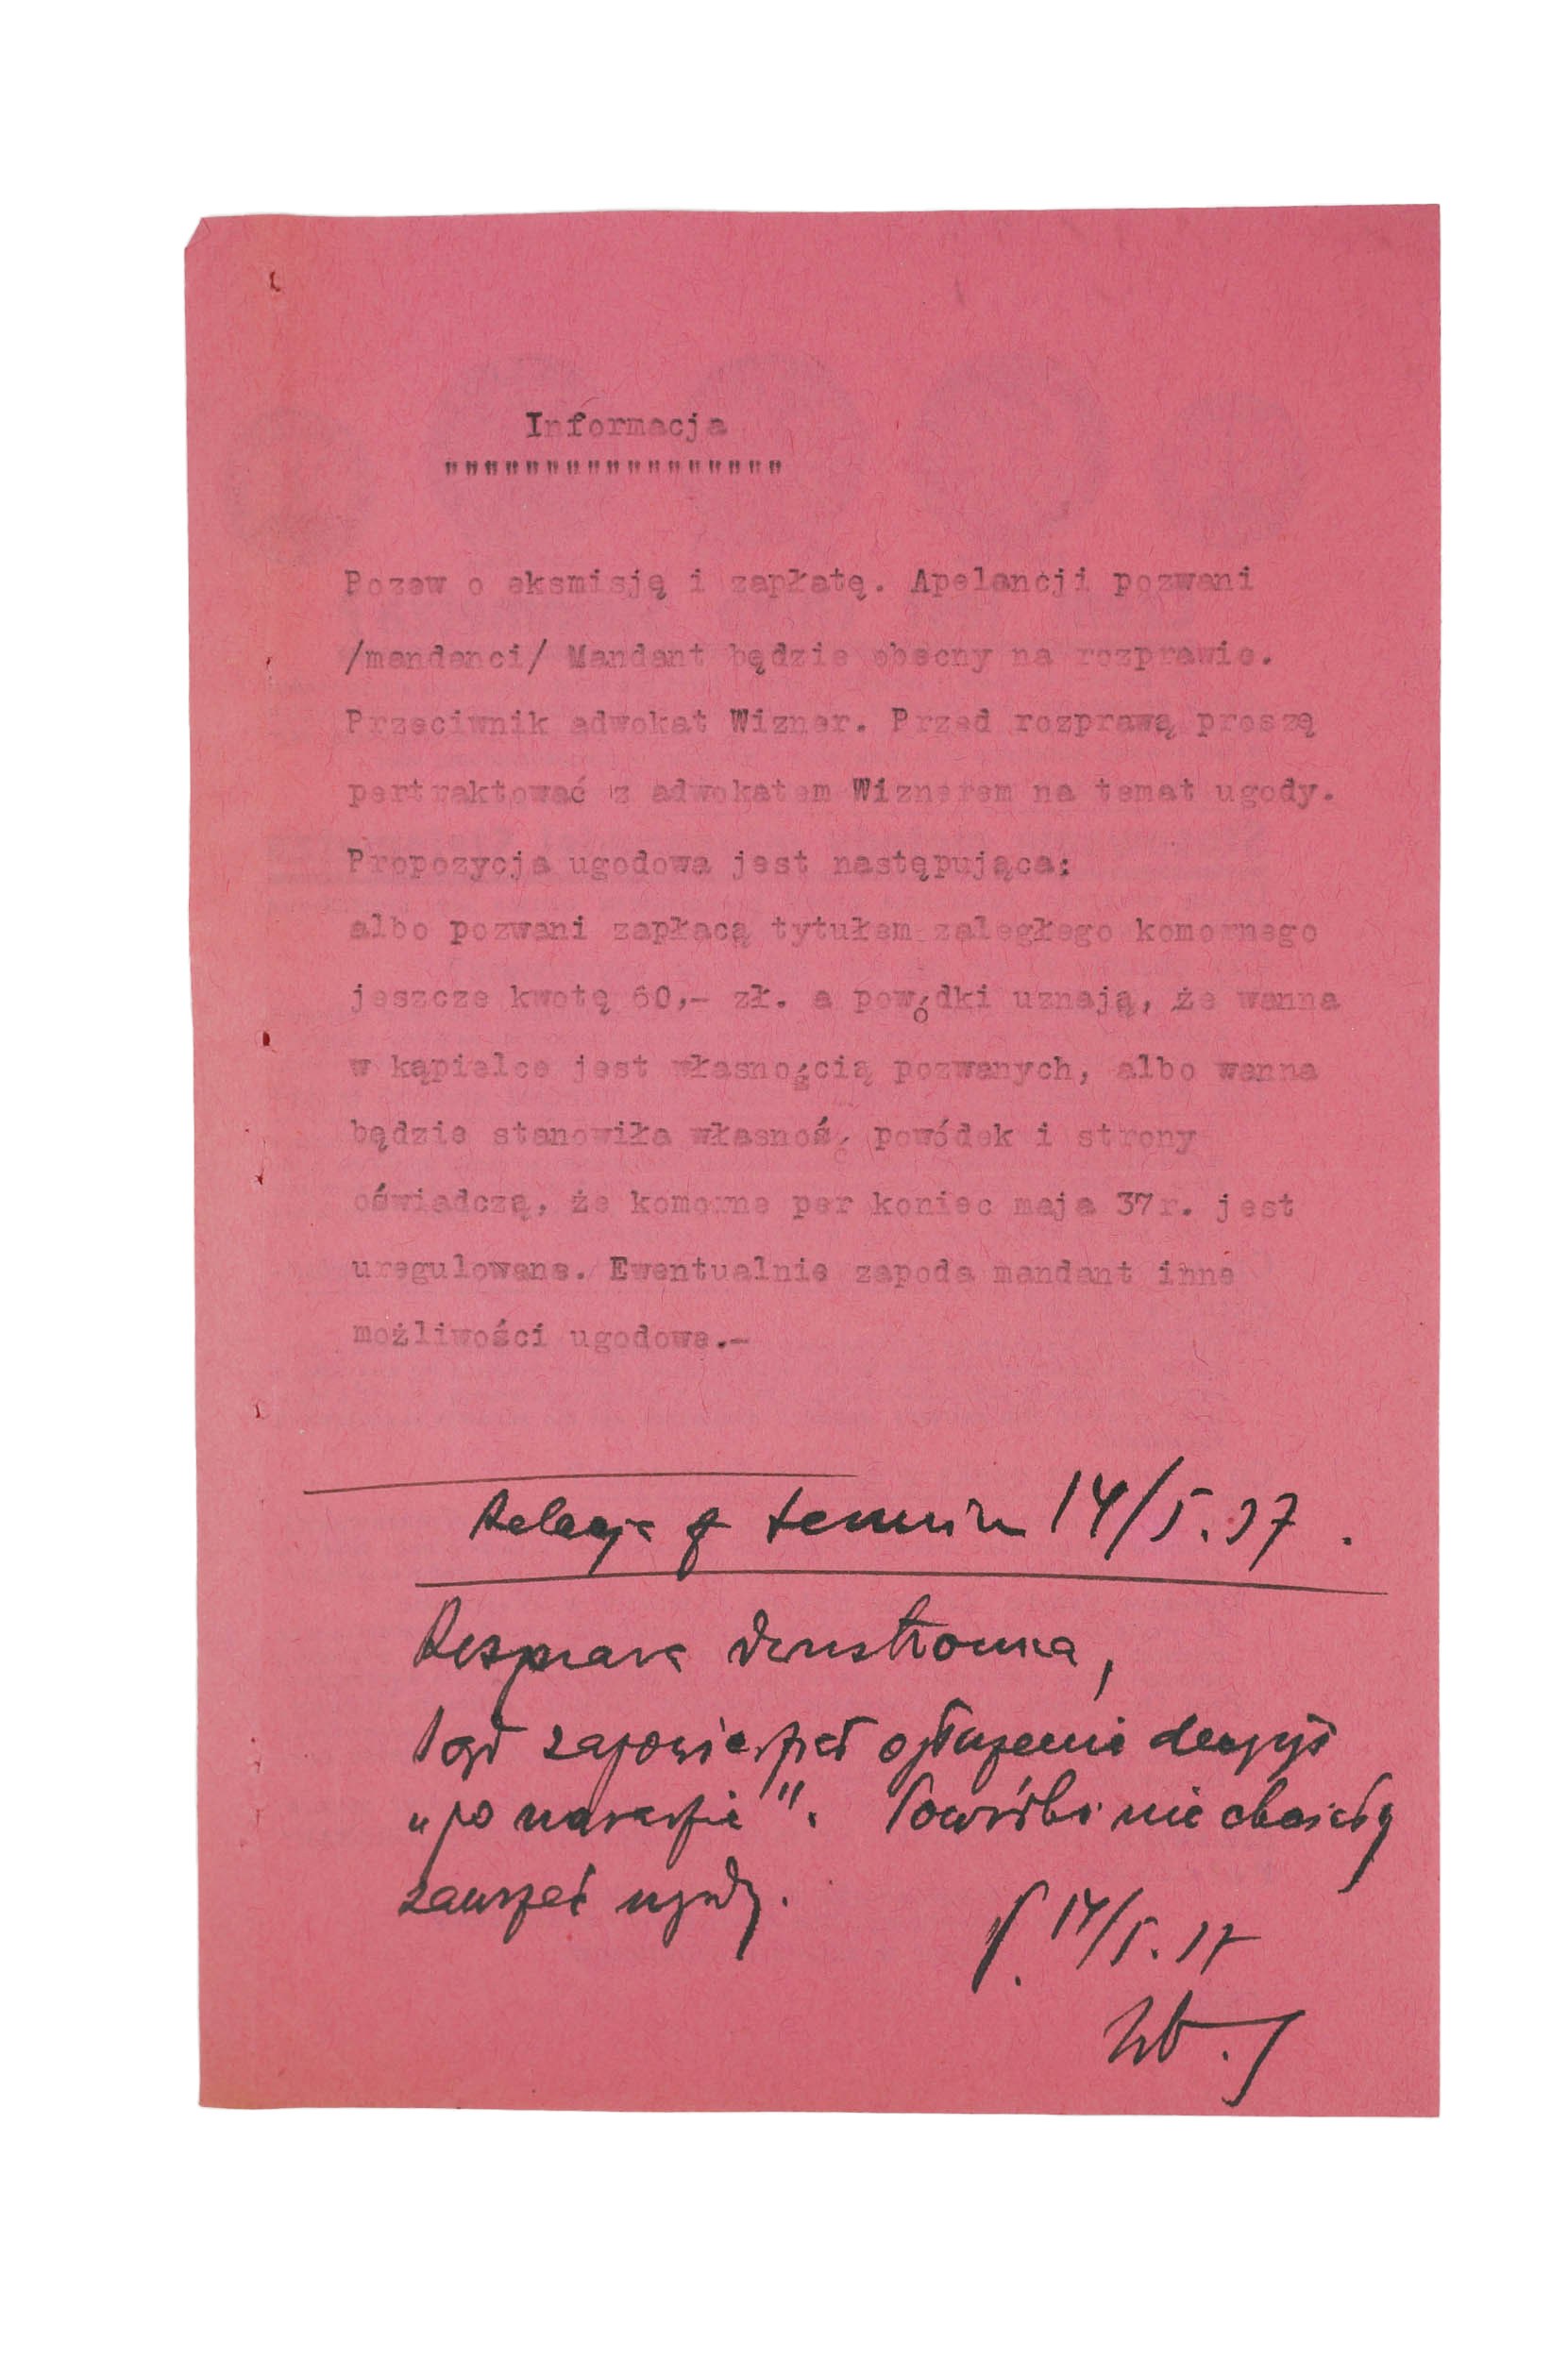 Informacja
"""""""""""""""""
Pozew o eksmisję i zapłatę. Apelancji pozwani
/mandanci/ Mandant będzie obecny na rozprawie.
Przeciwnik adwokat Wizner. Przed rozprawą proszę
pertraktować z adwokatem Wiznerem na temat ugody.
Propozycja ugodowa jest następująca:
albo pozwani zapłacą tytułem zaległego komornego
jeszcze kwotę 60,- zł. a powódki uznają, że wanna
w kąpielce jest własnością pozwanych, albo wanna
będzie stanowiła własność powódek i strony
oświadczą, że komorne per koniec maja 37r. jest
uregulowane. Ewentualnie zapoda mandant inne
możliwości ugodowe.-
Relacja z termin 14/5.37.
Rozprawa dwustronna,
Sąd zapowiedział ogłoszenie decyzji
„po naradzie". Powódki nie chciały
zawrzeć ugody.
14/5.37